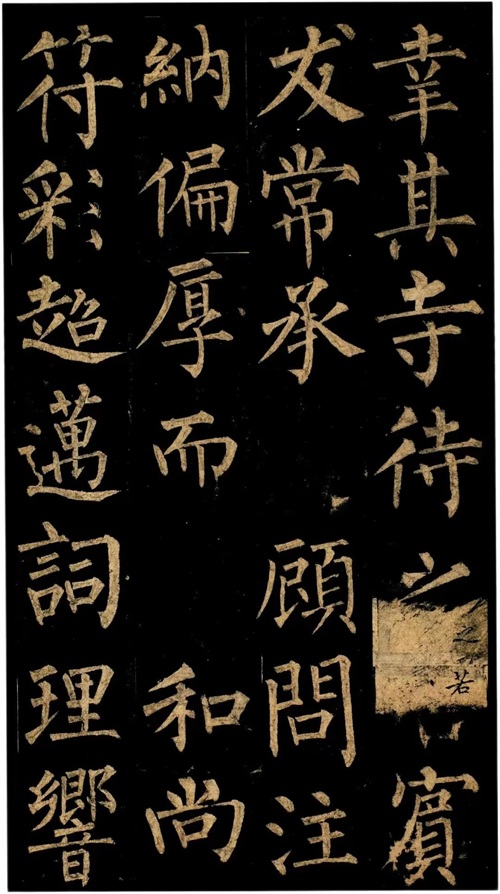 幸其寺待之若賓
友常承 顧問注
納偏厚而 和尚
符彩超邁詞理響